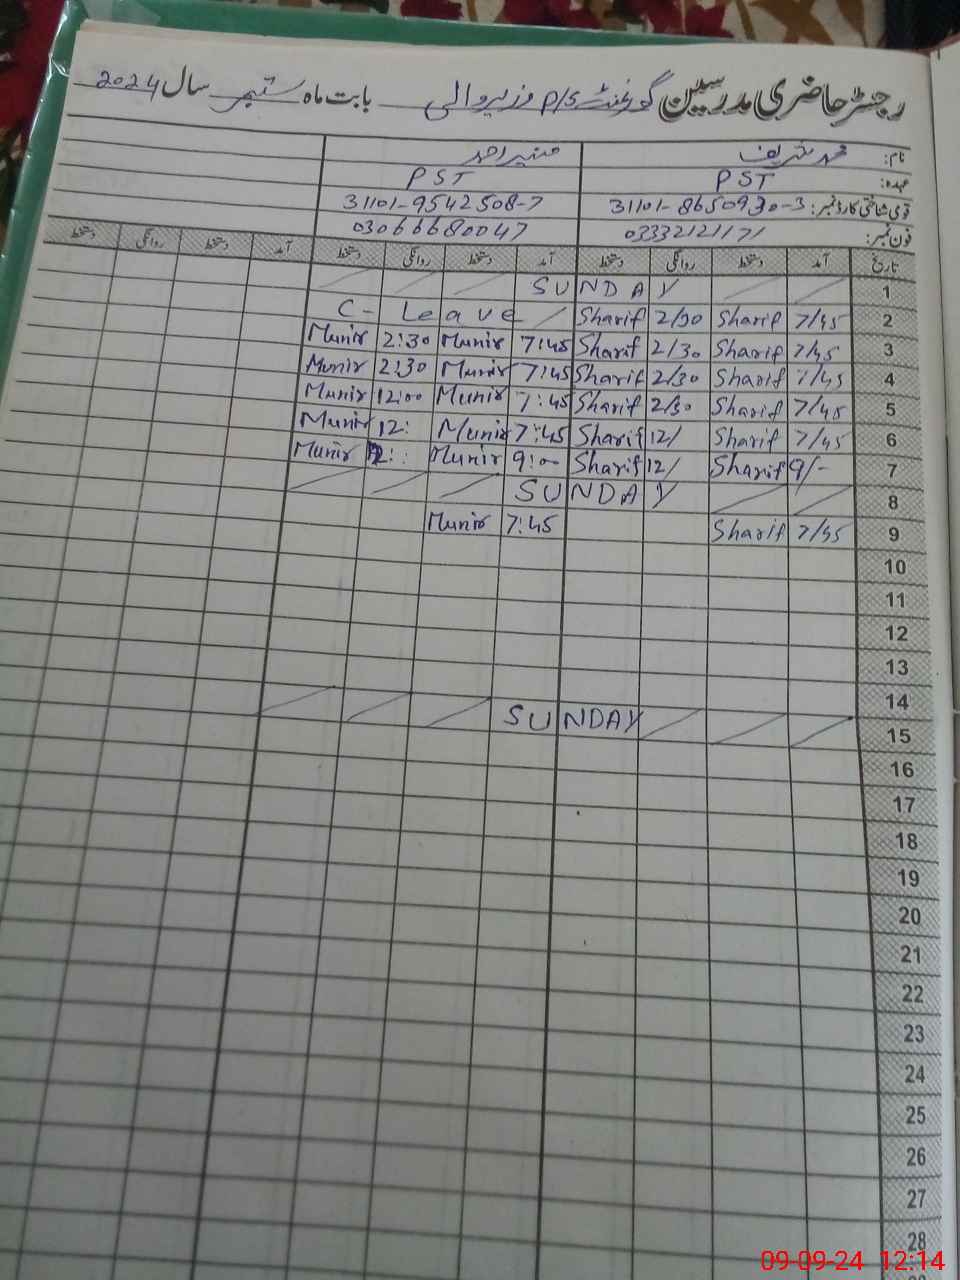 رجسٹر حاضری مدرسین گورنمنٹ P/S وزیر والی بابت ماہ ستمبر سال 2024
نام: محمد شریف منیر احمد
عہدہ: PST PST
قومی شناختی کارڈ نمبر: 31101-8650930-3 31101-9542508-7
فون نمبر: 03332121171 03066680047
تاریخ آمد دستخط روانگی دستخط آمد دستخط روانگی دستخط آمد دستخط روانگی دستخط
1 SUNDAY
2 7/45 Sharif 2/30 Sharif C- Leave
3 7/45 Sharif 2/30 Sharif 7:45 Munir 2:30 Munir
4 7/45 Sharif 2/30 Sharif 7:45 Munir 2:30 Munir
5 7/45 Sharif 2/30 Sharif 7:45 Munir 12:00 Munir
6 7/45 Sharif 12/ Sharif 7:45 Munir 12: Munir
7 9/- Sharif 12/ Sharif 9:00 Munir 12: Munir
8 SUNDAY
9 7/45 Sharif 7:45 Munir
10
11
12
13
14
15 SUNDAY
16
17
18
19
20
21
22
23
24
25
26
27
28
09-09-24 12:14